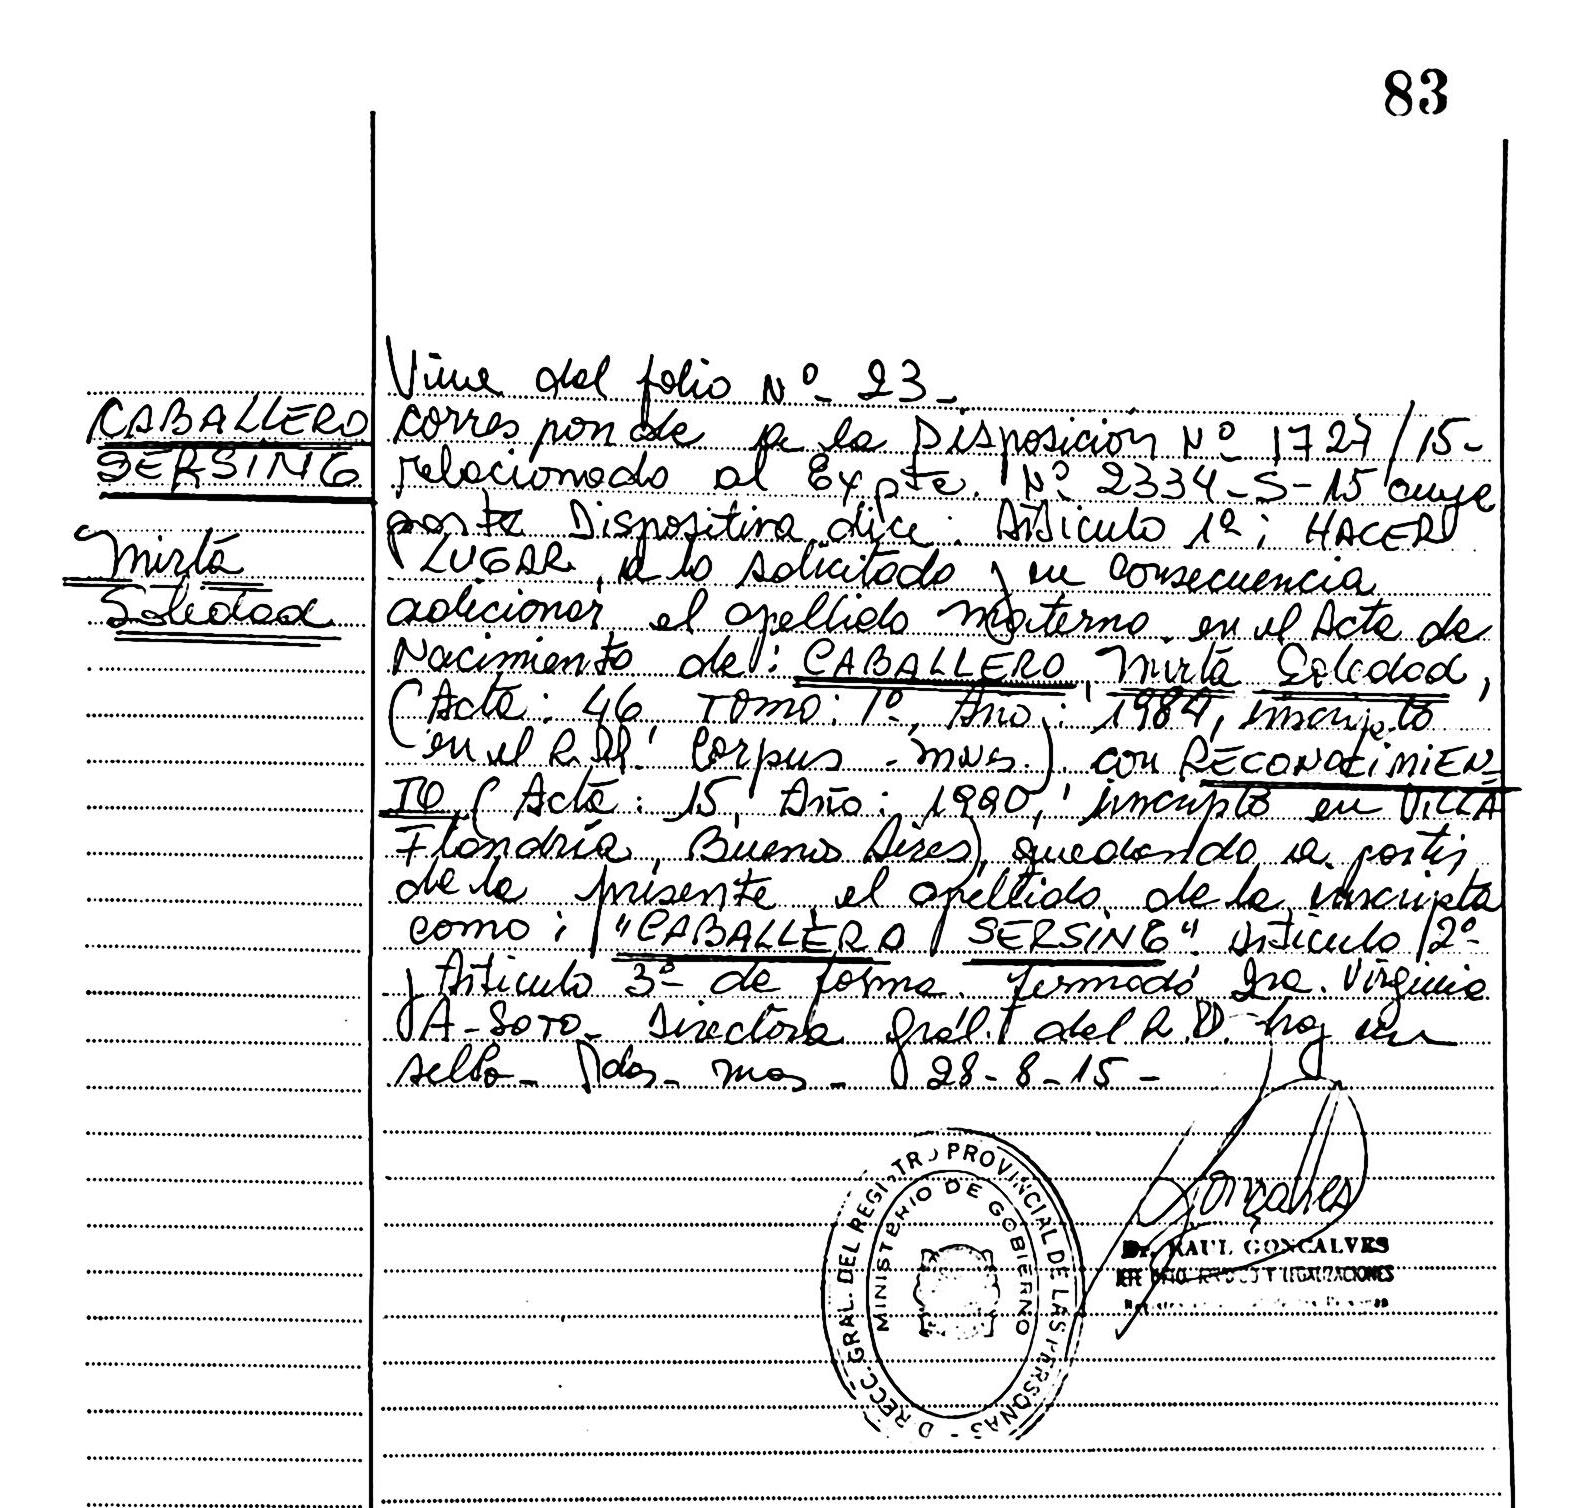 83
CABALLERO
SERSING
Mirta
Soledad
Viene del folio Nº 23-
corresponde a la Disposición Nº 1727/15-
relacionado al Expte. Nº 2334-S-15 cuya
parte Dispositiva dice: Artículo 1º: HACER
LUGAR, a lo solicitado y en consecuencia
adicionar el apellido materno en el Acta de
Nacimiento de: CABALLERO, Mirta Soledad,
(Acta: 46, Tomo: 1º, Año: 1984, inscripto
en el R. Corpus - Mnes.) con RECONOCIMIEN
TO (Acta: 15, Año: 1990, inscripto en VILLA
Flandria, Buenos Aires), quedando a partir
de la presente el apellido de la inscripta
como: "CABALLERO SERSING" Artículo 2º-
y Artículo 3º- de forma. Firmado Dra. Virginia
A-SOTO- Directora Gral. del R.P. hay un
sello- Pdas- Mnes- 28-8-15-
DIRECC. GRAL. DEL REGISTRO PROVINCIAL DE LAS PERSONAS -
MINISTERIO DE GOBIERNO
Gonçalves
Dr. RAUL GONCALVES
JEFE DPTO. Y LEGALIZACIONES